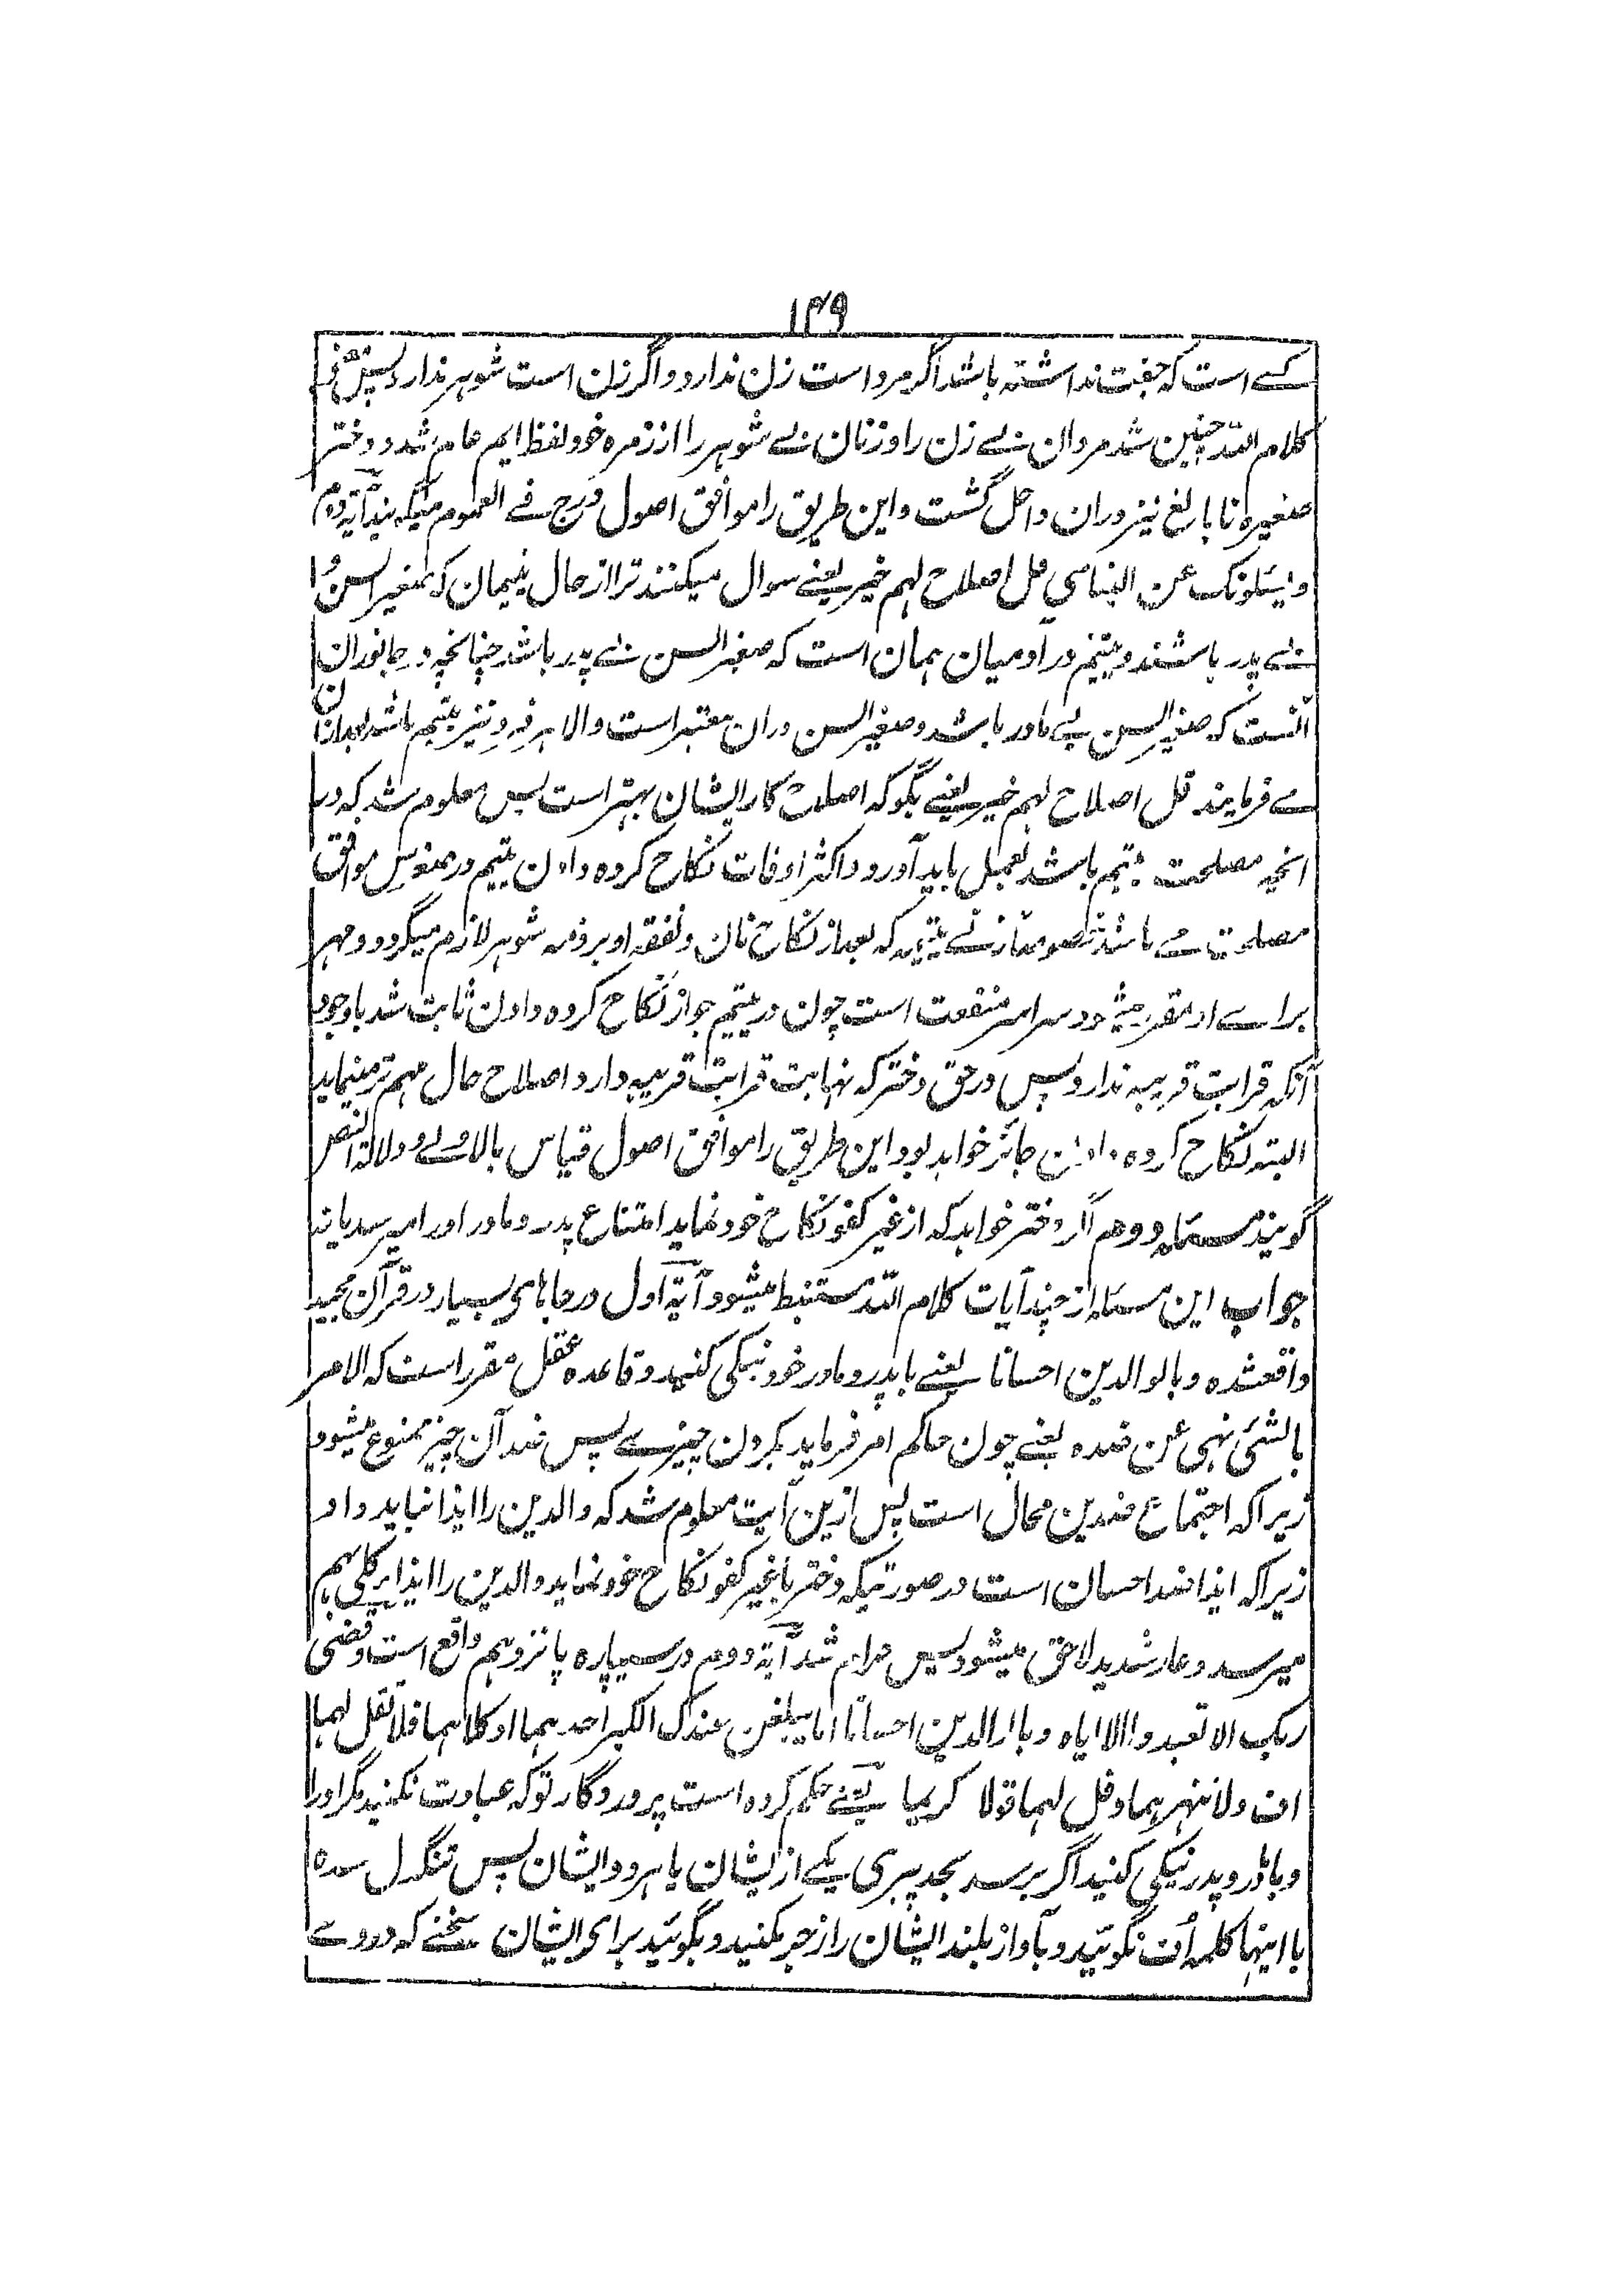 ۱۴۹
کسے است که جفت نداشته باشد اگر مرد است زن ندارد و اگر زن است شوهر ندارد پس معنی
کلام الله چنین شد مردان بے زن را و زنان بے شوهر را از زمره خود لفظ ایم عام شد و دختر
صغیره نابالغ نیز دران داخل گشت و این طریق را موافق اصول درج فے العموم میگویند آیة دوم
ویسئلونک عن الیتامی قل اصلاح لهم خیر یعنے سوال میکنند ترا از حال یتیمان که صغیر السن و
بے پدر باشند و یتیم در آدمیان همان است که صغیر السن بے پدر باشد چنانچه در جانوران
آنست که صغیر السن بے مادر باشد و صغیر السن دران معتبر است والا هر فرد نیز یتیم باشد بعد ازان
مے فرمایند قل اصلاح لهم خیر یعنے بگو که اصلاح کار ایشان بهتر است پس معلوم شد که در
انچه مصلحت یتیم باشد بعمل باید آورد و اکثر اوقات نکاح کرده دادن یتیم در صغر سن موافق
مصلحت مے باشد خصوصاً زنے یتیمه که بعد از نکاح نان و نفقه او بر ذمه شوهر لازم میگردد و مهر
براے او مقرر میشود سراسر منفعت است چون در یتیم جواز نکاح کرده دادن ثابت شد باوجود
آنکه قرابت قریبه ندارد پس در حق دختر که نهایت قرابت قریبه دارد اصلاح حال مهم تر مینماید
البته نکاح کرده دادن جائز خواهد بود این طریق را موافق اصول قیاس بالاولے و دلالة النص
گویند مسئله دوم اگر دختر خواهد که از غیر کفو نکاح خود نماید امتناع پدر و مادر او را میرسد یا نه
جواب این مسئله از چند آیات کلام الله مستنبط میشود آیة اول در جاهای بسیار در قرآن مجید
واقع شده و بالوالدین احسانا یعنے با پدر و مادر خود نیکی کنید و قاعده عقل مقرر است که الامر
بالشئ نهی عن ضده یعنے چون حاکم امر فرماید بکردن چیزے پس ضد آن چیز ممنوع میشود
زیرا که اجتماع ضدین محال است پس ازین آیت معلوم شد که والدین را ایذا نباید داد
زیرا که ایذا ضد احسان است در صورتیکه دختر با غیر کفو نکاح خود نماید والدین را ایذا بر کلی بهم
میرسد و عار شدید لاحق میشود پس حرام شد آیة دوم در سیپاره پانزدهم واقع است و قضی
ربک الا تعبدوا الا ایاه و بالوالدین احسانا اما یبلغن عندک الکبر احدهما او کلاهما فلا تقل لهما
اف ولا تنهرهما و قل لهما قولا کریما یعنے حکم کرده است پروردگار تو که عبادت نکنید مگر او را
و با مادر و پدر نیکی کنید اگر برسد بحد پیری یکے از ایشان یا هر دو ایشان پس تنگدل شده
با اینها کلمه اُف نگوئید و بآواز بلند ایشان را زجر مکنید و بگوئید برای ایشان سخنے که در وے